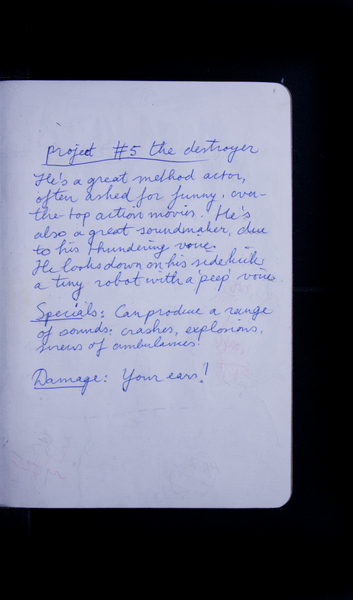 project #5 the destroyer
He's a great method actor,
often asked for funny, over-
the-top action movies. He's
also a great soundmaker, due
to his thundering voice.
He looks down on his sidekick
a tiny robot with a 'peep' voice.
Specials: Can produce a range
of sounds: crashes, explosions,
sirens of ambulances.
Damage: Your ears!